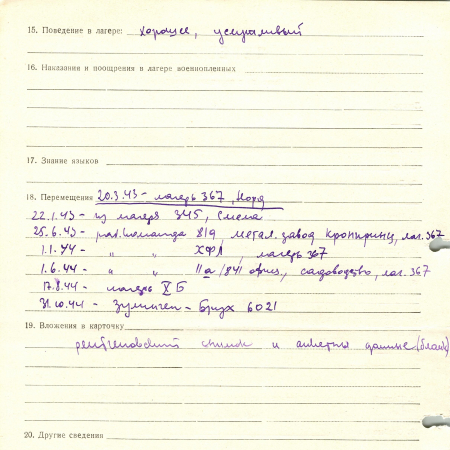 15. Поведение в лагере: хорошее, услужливый
16. Наказания и поощрения в лагере военнопленных
17. Знание языков
18. Перемещения 20.3.43 – лагерь 367, Норд
22.1.43 – из лагеря 345, Смела
25.6.43 – раб. команда 819 метал. завод Кронпринц, лаг. 367
1.1.44 – " " ХФЛ, лагерь 367
1.6.44 – " " 11а /841 садоводство, лаг. 367
17.8.44 – лагерь X Б
31.10.44 – Зулинген – Брух 6021
19. Вложения в карточку
рентгеновский снимок и анкетные данные (бланк)
20. Другие сведения